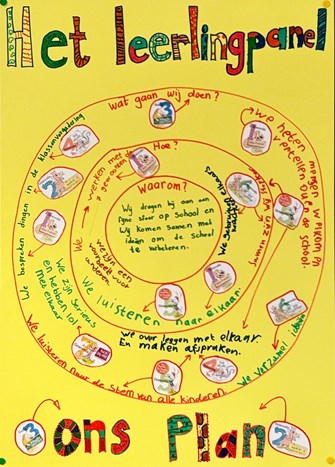 Het leerlingpanel
Wat gaan wij doen?
We bespreken dingen in de klassenvergadering
We helpen mensen welkom en vertellen over op school.
Hoe?
We werken met
Waarom?
Wij dragen bij aan een
fijne sfeer op School en
Wij komen samen met
ideën om de school
te verbeteren.
We zijn een voorbeeld voor anderen
We luisteren naar elkaar.
We zijn Serieus
en hebben lol
met elkaar
We over leggen met elkaar.
En maken afspraken.
We luisteren naar de stem van alle kinderen.
We verzamelen
ons Plan